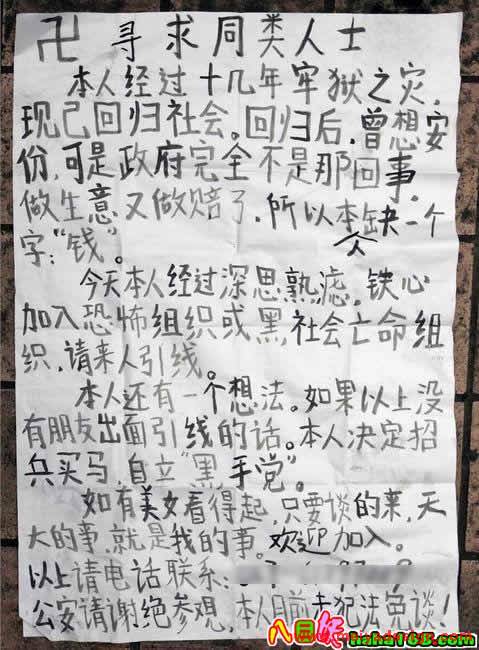 卍 寻求同类人士
本人经过十几年牢狱之灾,
现已回归社会。回归后,曾想安
份,可是政府完全不是那回事。
做生意又做赔了,所以本人缺一个
字:“钱”。
今天本人经过深思熟滤,铁心
加入恐怖组织或黑社会亡命组
织,请来人引线。
本人还有一个想法。如果以上没
有朋友出面引线的话。本人决定招
兵买马,自立“黑手党”。
如有美女看得起,只要谈的来,天
大的事,就是我的事。欢迎加入。
以上请电话联系:
公安请谢绝参观,本人目前未犯法免谈!
haha168.com